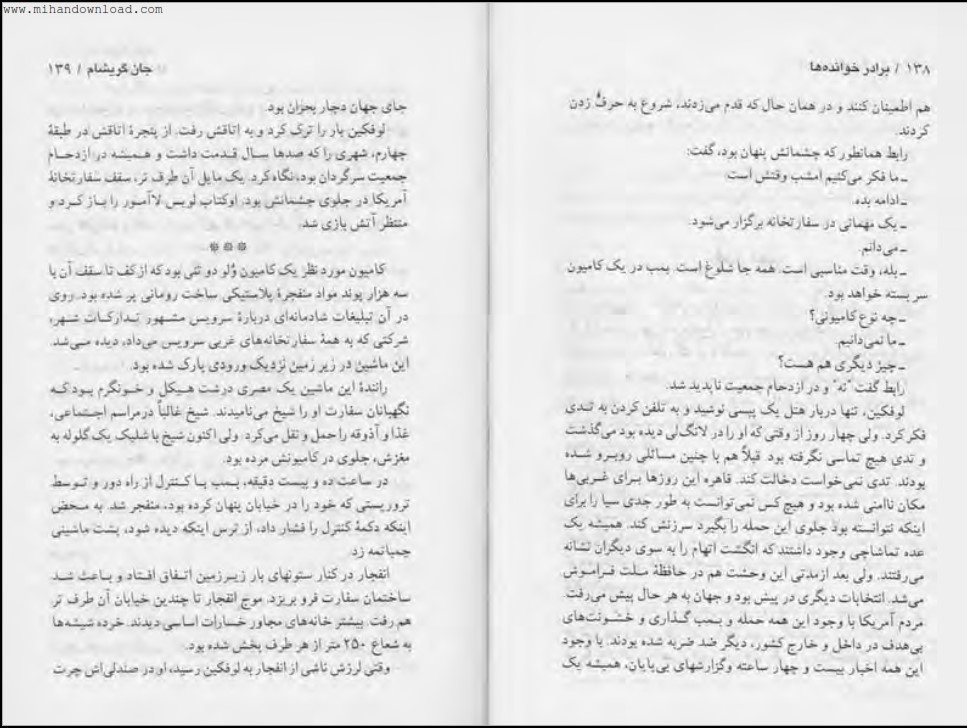 www.mihandownload.com
۱۳۸ / برادر خوانده‌ها
هم اطمینان کنند و در همان حال که قدم می‌زدند، شروع به حرف زدن
کردند.
رابط همانطور که چشمانش پنهان بود، گفت:
ـ ما فکر می‌کنیم امشب وقتش است.
ـ ادامه بده.
ـ یک مهمانی در سفارتخانه برگزار می‌شود.
ـ می‌دانم.
ـ بله، وقت مناسبی است. همه جا شلوغ است. بمب در یک کامیون
سر بسته خواهد بود.
ـ چه نوع کامیونی؟
ـ ما نمی‌دانیم.
ـ چیز دیگری هم هست؟
رابط گفت "نه" و در ازدحام جمعیت ناپدید شد.
لوفکین، تنها دربار هتل یک پپسی نوشید و به تلفن کردن به تدی
فکر کرد. ولی چهار روز از وقتی که او را در لانگلی دیده بود می‌گذشت
و تدی هیچ تماسی نگرفته بود. قبلاً هم با چنین مسائلی روبرو شده
بودند. تدی نمی‌خواست دخالت کند. قاهره این روزها برای غربی‌ها
مکان ناامنی شده بود و هیچ کس نمی‌توانست به طور جدی سیا را برای
اینکه نتوانسته بود جلوی این حمله را بگیرد سرزنش کند. همیشه یک
عده تماشاچی وجود داشتند که انگشت اتهام را به سوی دیگران نشانه
می‌رفتند. ولی بعد از مدتی این وحشت هم در حافظهٔ ملت فراموش
می‌شد. انتخابات دیگری در پیش بود و جهان به هر حال پیش می‌رفت.
مردم آمریکا با وجود این همه حمله و بمب گذاری و خشونت‌های
بی‌هدف در داخل و خارج کشور، دیگر ضد ضربه شده بودند. با وجود
این همه اخبار بیست و چهار ساعته وگزارشهای بی‌پایان، همیشه یک
جان گریشام / ۱۳۹
جای جهان دچار بحران بود.
لوفکین بار را ترک کرد و به اتاقش رفت. از پنجرهٔ اتاقش در طبقهٔ
چهارم، شهری را که صدها سال قدمت داشت و همیشه در ازدحام
جمعیت سرگردان بود، نگاه کرد. یک مایل آن طرف تر، سقف سفارتخانهٔ
آمریکا در جلوی چشمانش بود. اوکتاب لویس لاآمور را باز کرد و
منتظر آتش بازی شد.
***
کامیون مورد نظر یک کامیون وُلو دو تنی بود که از کف تا سقف آن با
سه هزار پوند مواد منفجرهٔ پلاستیکی ساخت رومانی پر شده بود. روی
در آن تبلیغات شادمانه‌ای دربارهٔ سرویس مشهور تدارکات شهر،
شرکتی که به همهٔ سفارتخانه‌های غربی سرویس می‌داد، دیده می‌شد.
این ماشین در زیر زمین نزدیک ورودی پارک شده بود.
رانندهٔ این ماشین یک مصری درشت هیکل و خونگرم بود که
نگهبانان سفارت او را شیخ می‌نامیدند. شیخ غالباً درمراسم اجتماعی،
غذا و آذوقه را حمل و نقل می‌کرد. ولی اکنون شیخ با شلیک یک گلوله به
مغزش، جلوی در کامیونش مرده بود.
در ساعت ده و بیست دقیقه، بمب با کنترل از راه دور و توسط
تروریستی که خود را در خیابان پنهان کرده بود، منفجر شد. به محض
اینکه دکمهٔ کنترل را فشار داد، از ترس اینکه دیده شود، پشت ماشینی
چمباتمه زد.
انفجار در کنار ستونهای بار زیرزمین اتفاق افتاد و باعث شد
ساختمان سفارت فرو بریزد. موج انفجار تا چندین خیابان آن طرف تر
هم رفت. بیشتر خانه‌های مجاور خسارات اساسی دیدند. خرده شیشه‌ها
به شعاع ۲۵۰ متر از هر طرف پخش شده بود.
وقتی لرزش ناشی از انفجار به لوفکین رسید، او در صندلی‌اش چرت